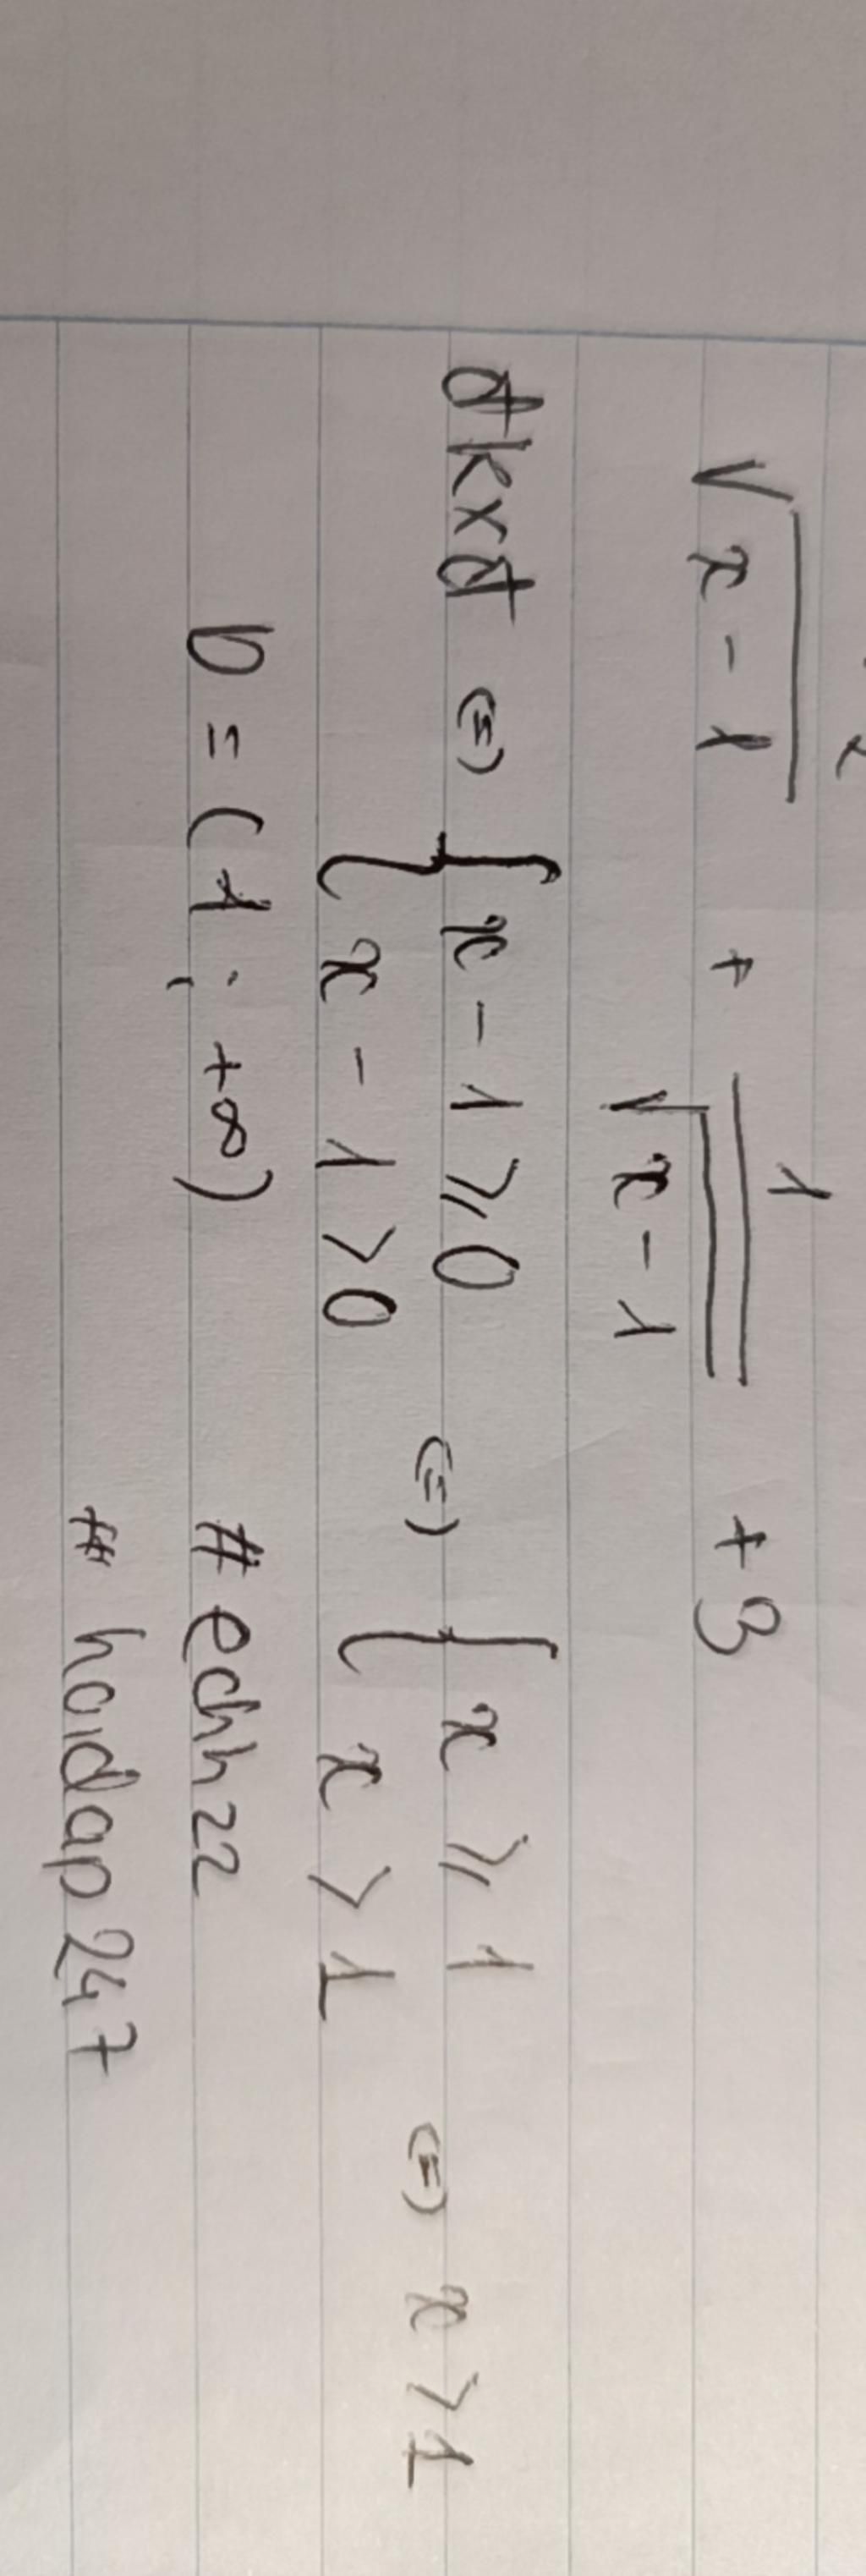 √(x - 1) + 1/√(x - 1) + 3
đkxđ (=) { x - 1 ⩾ 0 (=) { x ⩾ 1 (=) x > 1
{ x - 1 > 0 { x > 1
D = (1 ; +∞) # echh22
# hoidap247